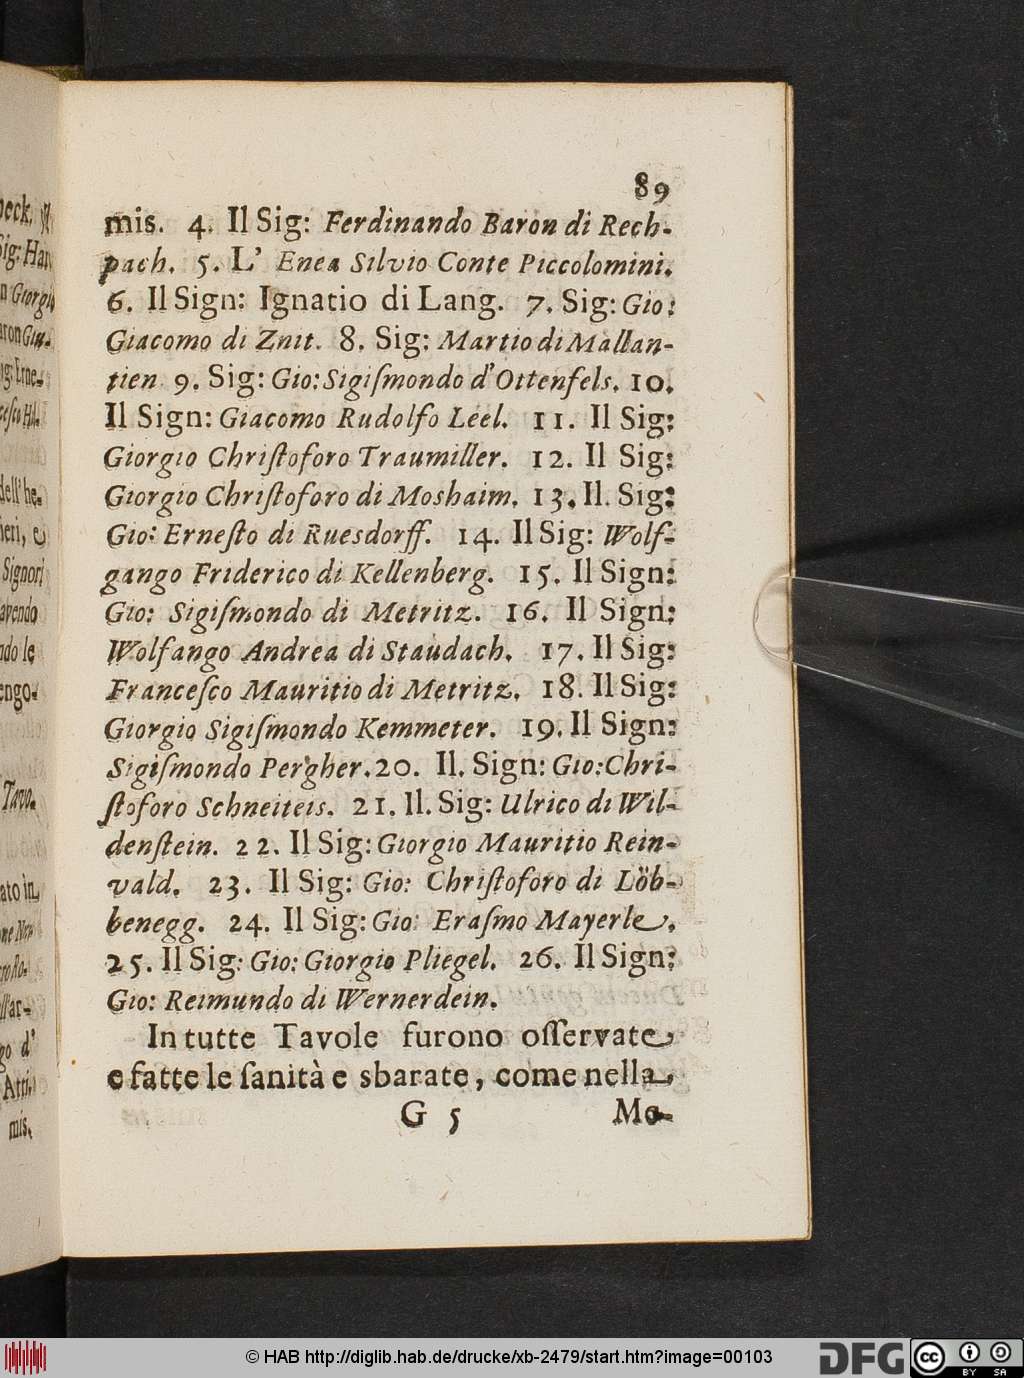 89
mis. 4. Il Sig: Ferdinando Baron di Rech-
pach. 5. L' Enea Silvio Conte Piccolomini.
6. Il Sign: Ignatio di Lang. 7. Sig: Gio:
Giacomo di Znit. 8. Sig: Martio di Mallan-
tien 9. Sig: Gio: Sigiſmondo d'Ottenfels. 10.
Il Sign: Giacomo Rudolfo Leel. 11. Il Sig:
Giorgio Chriſtoforo Traumiller. 12. Il Sig:
Giorgio Chriſtoforo di Moshaim. 13. Il. Sig:
Gio: Erneſto di Ruesdorff. 14. Il Sig: Wolf-
gango Friderico di Kellenberg. 15. Il Sign:
Gio: Sigiſmondo di Metritz. 16. Il Sign:
Wolfango Andrea di Staudach. 17. Il Sig:
Franceſco Mauritio di Metritz. 18. Il Sig:
Giorgio Sigiſmondo Kemmeter. 19. Il Sign:
Sigiſmondo Pergher. 20. Il. Sign: Gio: Chri-
ſtoforo Schneiteis. 21. Il. Sig: Ulrico di Wil-
denſtein. 22. Il Sig: Giorgio Mauritio Rein-
vald. 23. Il Sig: Gio: Chriſtoforo di Löb-
benegg. 24. Il Sig: Gio: Eraſmo Mayerle.
25. Il Sig: Gio: Giorgio Pliegel. 26. Il Sign:
Gio: Reimundo di Wernerdein.
In tutte Tavole furono oſſervate
e fatte le ſanità e sbarate, come nella
G 5 Mo-
dell'he-
ieri, e
Signori
avendo
ndo le
engo-
Tavo-
ato in
go d'
Atti-
mis.
© HAB http://diglib.hab.de/drucke/xb-2479/start.htm?image=00103
DFG
cc BY SA